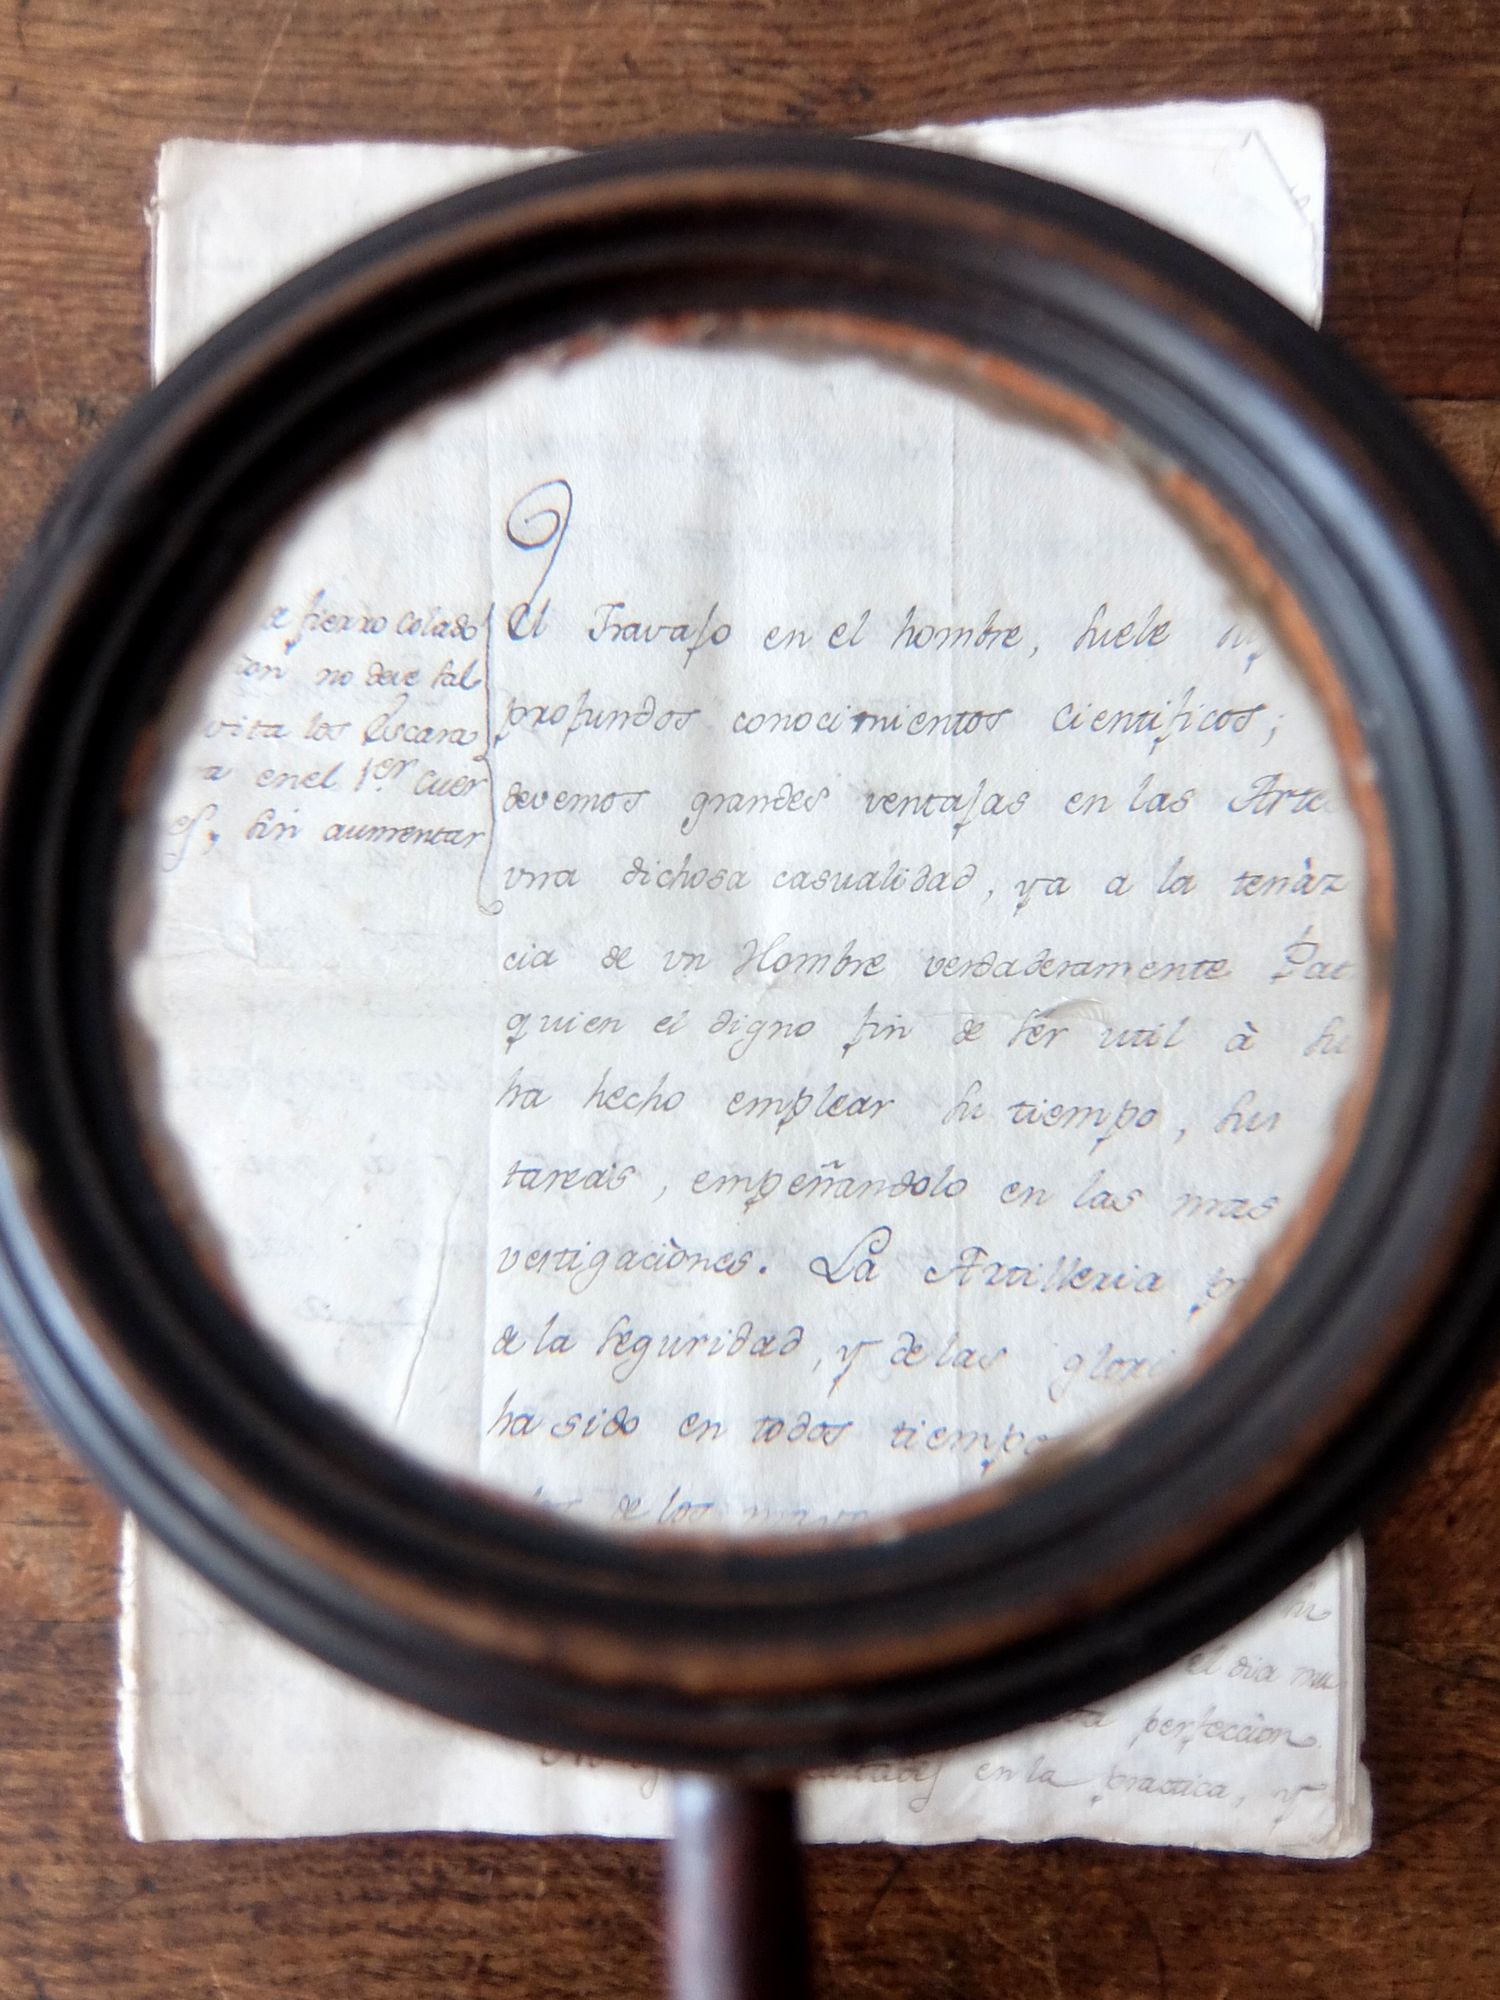 fierro colado
no deve sal
los Escara
en el 1.er cuer
sin aumentar
El Travajo en el hombre, suele
profundos conocimientos cientificos;
devemos grandes ventajas en las Arte
vna dichosa casualidad, ya a la tenàz
cia de vn Hombre verdaderamente Pat
quien el digno fin de ser util à su
ha hecho emplear su tiempo, sus
tareas, empeñandolo en las mas
vestigaciones. La Artilleria
de la seguridad, y de las glori
ha sido en todos tiempo
de los mayo
su
el dia mu
perfeccion
en la practica, y